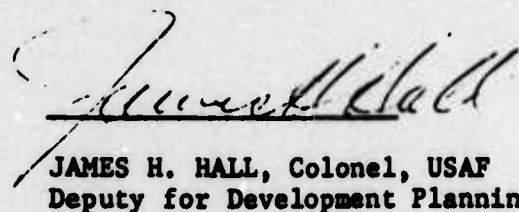 James H Hall
JAMES H. HALL, Colonel, USAF
Deputy for Development Plannin